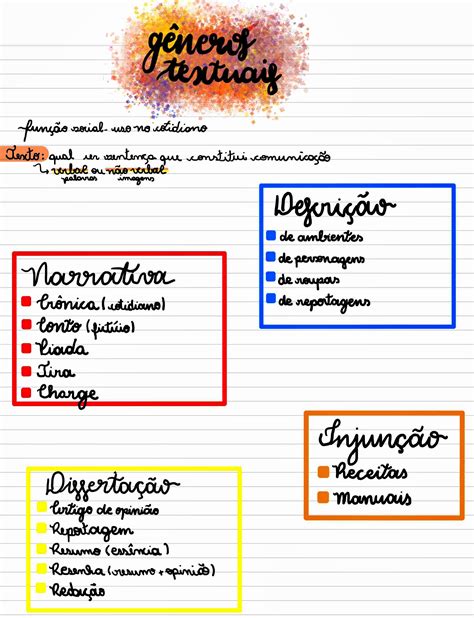 gêneros
textuais
função social - uso no cotidiano
Texto: qual er sentença que constitui comunicação
↳ verbal ou não verbal
palavras imagens
Descrição
de ambientes
de personagens
de roupas
de reportagens
Narrativa
Crônica (cotidiano)
Conto (fictício)
Piada
Tira
Charge
Injunção
Receitas
Manuais
Dissertação
Artigo de opinião
Reportagem
Resumo (essência)
Resenha (resumo + opinião)
Redação